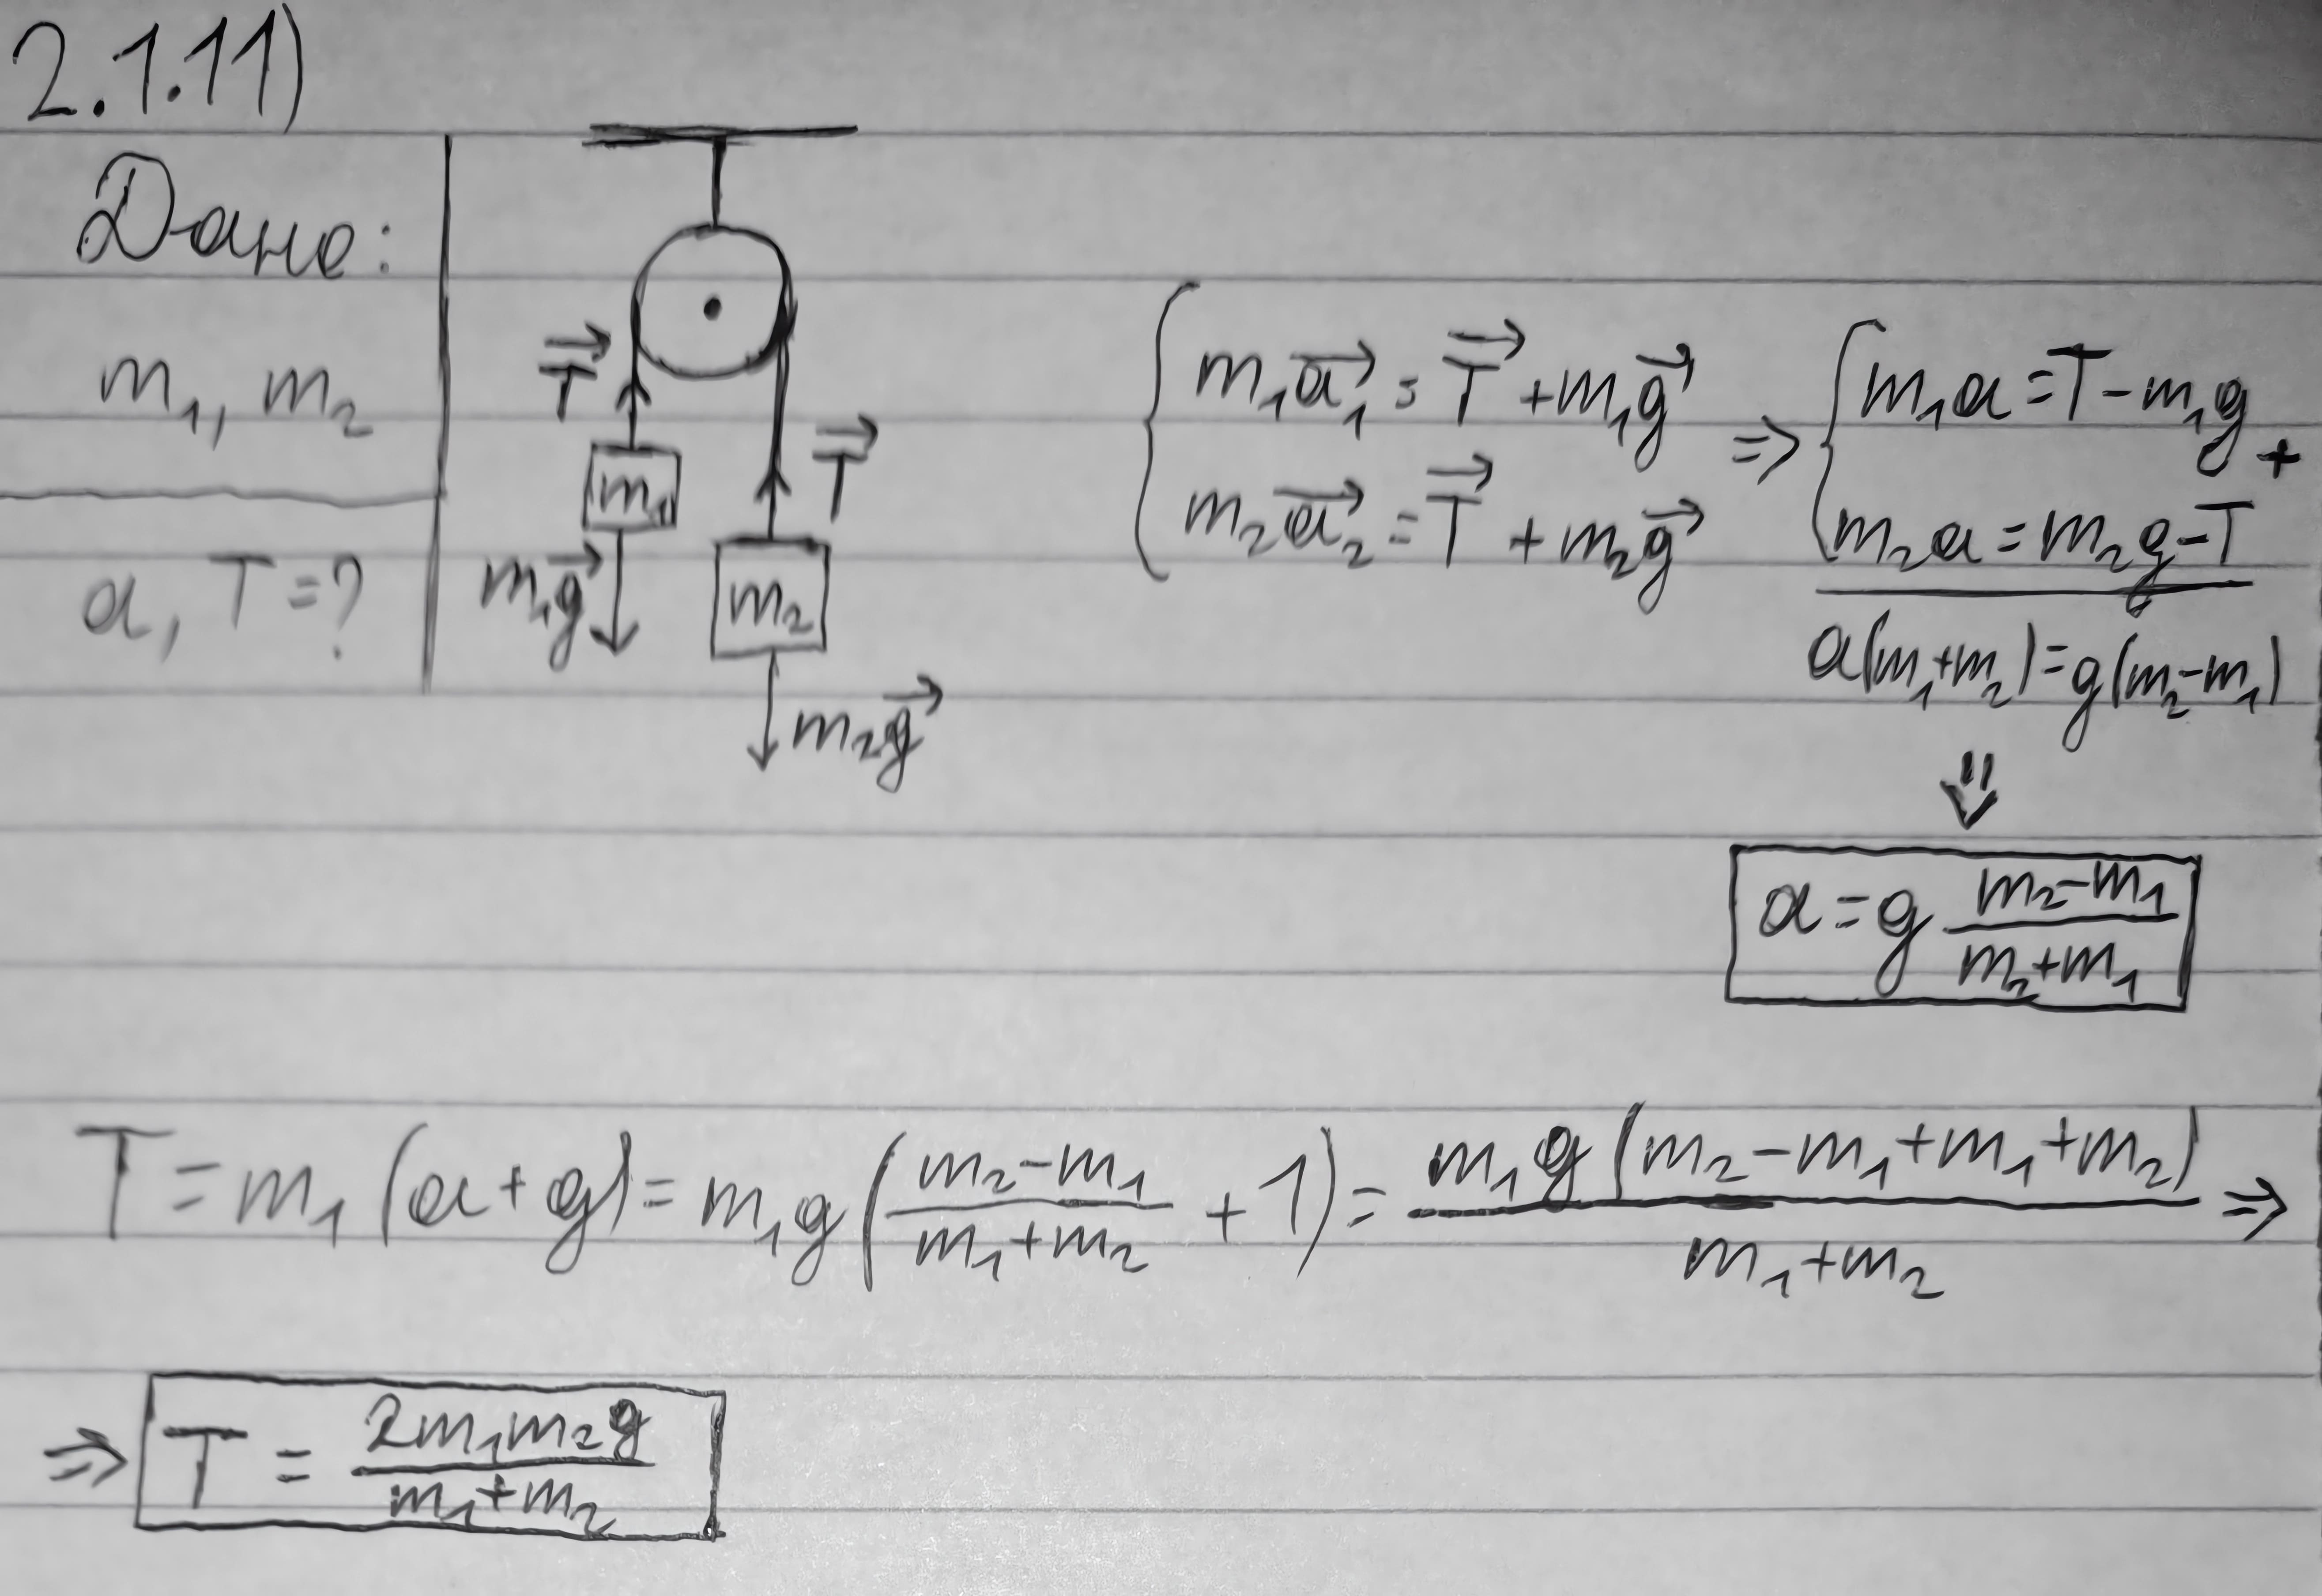 2.1.11)
Дано:
m₁, m₂
a, T = ?
T⃗
T⃗
m₁
m₂
m₁g⃗
m₂g⃗
m₁a⃗₁ = T⃗ + m₁g⃗
m₂a⃗₂ = T⃗ + m₂g⃗
⇒
m₁a = T - m₁g
+
m₂a = m₂g - T
a(m₁+m₂) = g(m₂-m₁)
⇓
a = g \frac{m₂-m₁}{m₂+m₁}
T = m₁(a+g) = m₁g(\frac{m₂-m₁}{m₁+m₂} + 1) = \frac{m₁g(m₂-m₁+m₁+m₂)}{m₁+m₂} ⇒
⇒ T = \frac{2m₁m₂g}{m₁+m₂}